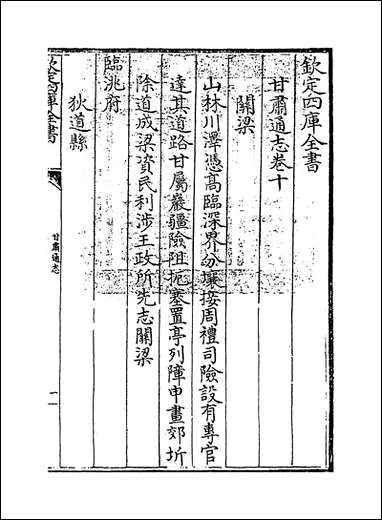 欽定四庫全書
甘肅通志卷十
關梁
山林川澤憑高臨深界分壤接周禮司險設有專官
達其道路甘屬巖疆險阻扼塞置亭列障申畫郊圻
除道成梁資民利涉王政所先志關梁
臨洮府
狄道縣
欽定四庫全書
甘肅通志
一